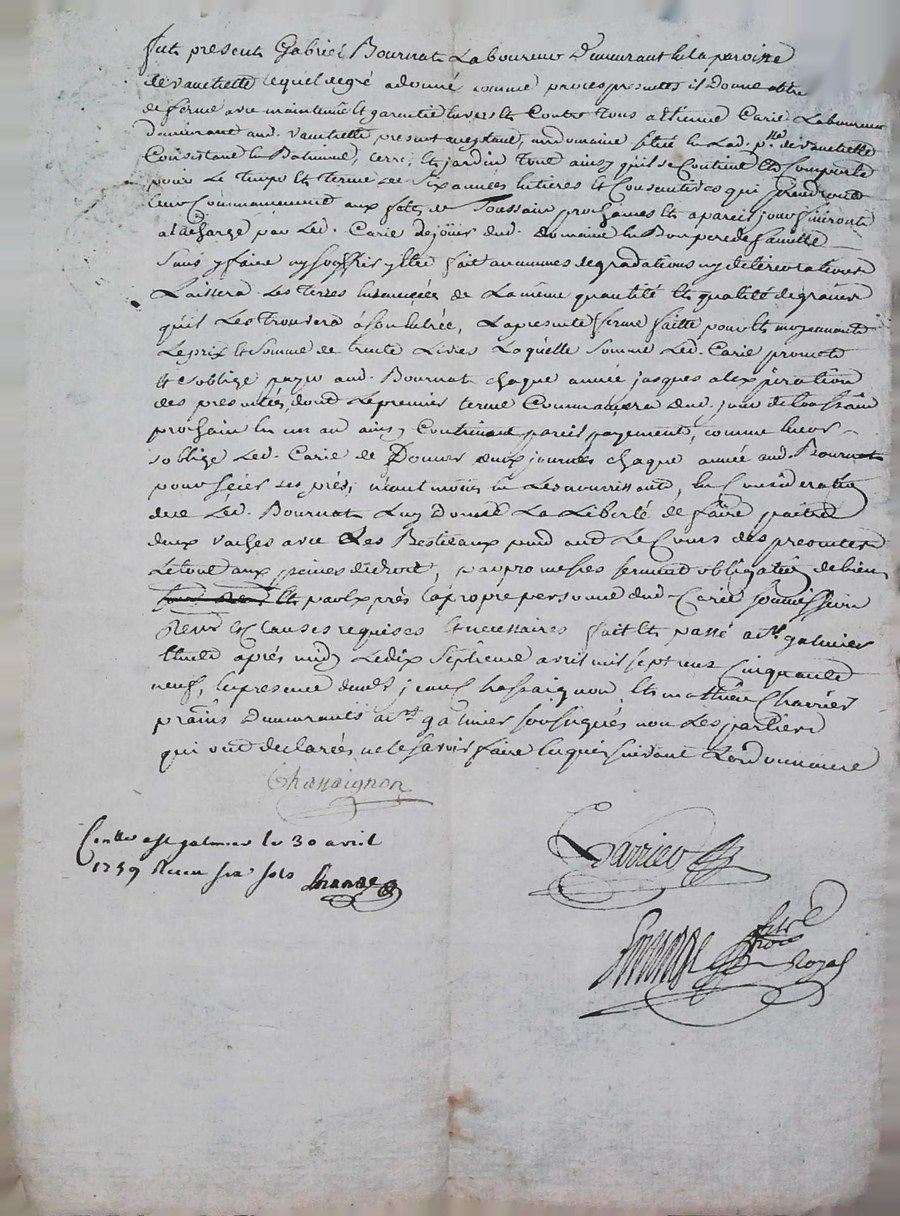 fut present Gabriel Bournat Laboureur Demeurant en la paroisse
de vauchette lequel degré a donné comme par ces presentes il Donne a titre
de ferme avec maintenüe et garentie envers et Contre tous a Etienne Carie Laboureur
demeurant aud. vauchette present acceptant, un domaine situé en Lad. p.sse de vauchette
Consistant en Batiment, terre, et jardin tout ainsy quil se Contient et Comporte
pour Le temps et terme de Six années entieres et Consecutives qui prendront
leur Commancement aux fetes de Toussain prochaines et a pareil jour finiront
a la charge par Led. Carie de jouir dud. domaine en Bon pere de famille
Sans y faire ny souffrir y etre fait aucunnes degradations ny deteriorations
Laissera Les terres ensemencées de La même quantité et qualité de grains
quil Les trouvera a son entrée, La presente ferme faitte pour et moyennant
Le prix et somme de trente Livres Laquelle somme Led. Carie promet
et soblige payer aud. Bournat chaque année jusques a lexpiration
des presentes, dont Le premier terme Commancera dud. jour de toussain
prochain en un an ainsy Continuant pareil payement, comme encor
soblige Led. Carie de Donner deux journés chaque année aud. Bournat
pour séier ses prés, néantmoins en Les nourrissant, en Consideration
de ce Led. Bournat Luy Donne La Liberté de faire paitre
deux vaches avec Les Bestieaux pend ant Le Cours des presentes
Le tout aux peines de droit, par promesses serment obligation de biens
et par exprès la propre personne dud. Carie soumissions
Renv et Clauses requises et necessaires fait et passé a St galmier
Etude après midy Le dix Septieme avril mil sept cens Cinquante
neuf, en presence de mes jean Chassaignon et mathieu Charrier
pratns Demeurants a St galmier soussignés non Les parties
qui ont declarés ne le savoir faire enquis suivant Lordonnance
Chassaignon
Conllé a st galmier le 30 avril
1759 Receu six sols
Charrier
Royal